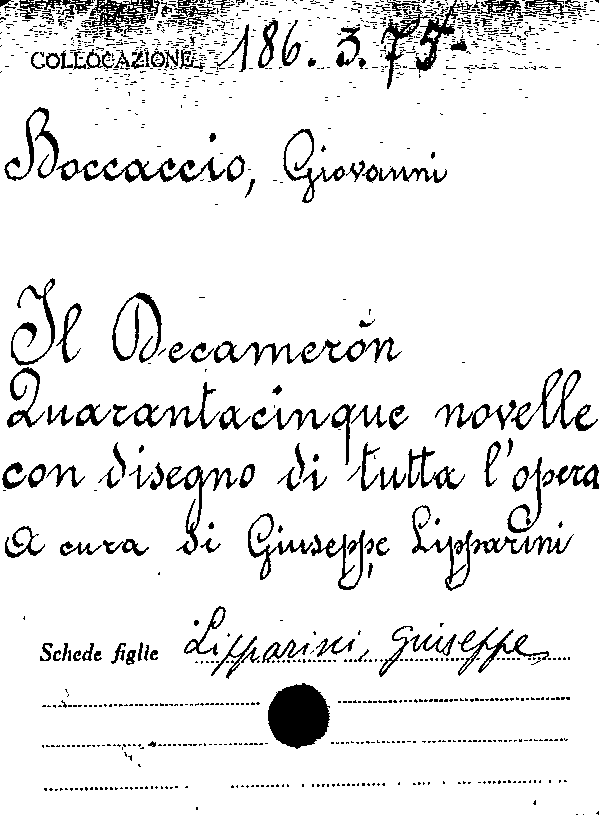 COLLOCAZIONE 186.3.75-
Boccaccio, Giovanni
Il Decamerón
Quarantacinque novelle
con disegno di tutta l'opera
A cura di Giuseppe Lipparini
Schede figlie Lipparini, Giuseppe